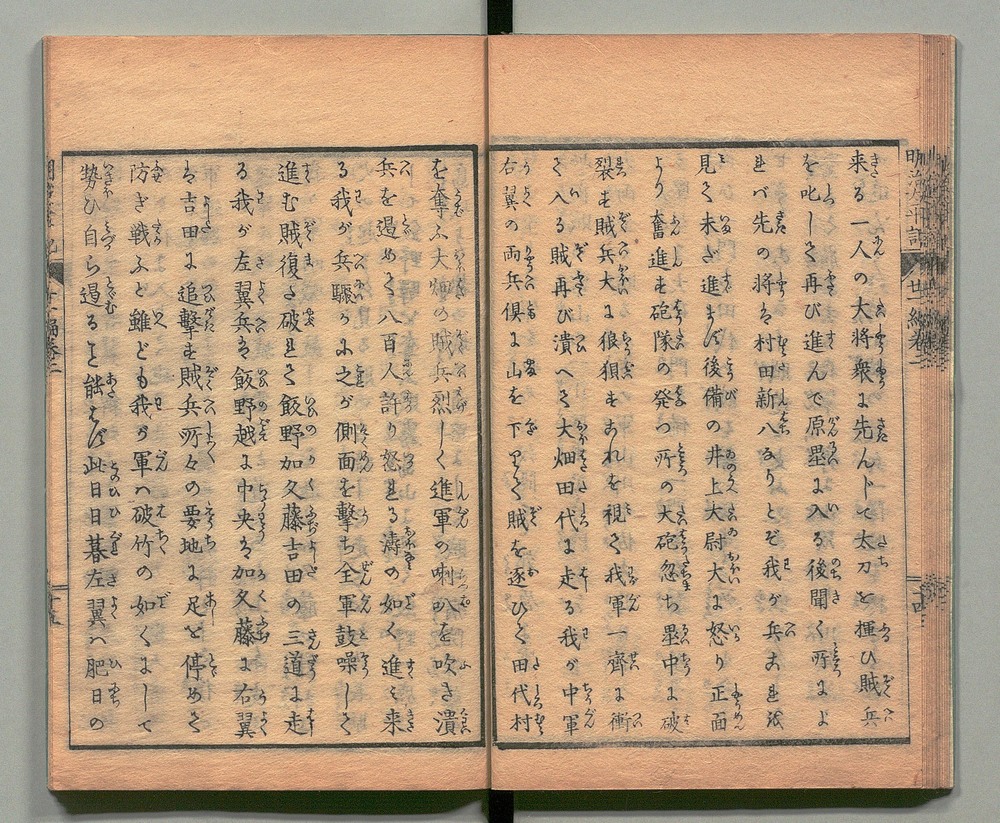 来る一人の大将衆に先んじて太刀を揮ひ賊兵
を叱して再び進んで原塁に入る後聞く所によ
れバ先の将ハ村田新八なりとぞ我が兵これを
見て未だ進まず後備の井上大尉大に怒り正面
より奮進す砲隊の発つ所の大砲忽ち塁中に破
裂す賊兵大に狼狽すこれを視て我軍一齊に衝
て入る賊再び潰へて大畑田代に走る我が中軍
右翼の両兵倶に山を下りて賊を逐ひて田代村
を奪ふ大畑の賊兵烈しく進軍の喇叭を吹き潰
兵を遏めて八百人許り怒れる濤の如く進み来
る我が兵驟かに之が側面を擊ち全軍鼓噪して
進む賊復た破れて飯野加久藤吉田の三道に走
る我が左翼兵ハ飯野越に中央ハ加久藤に右翼
ハ吉田に追擊す賊兵所々の要地に足を停めて
防ぎ戦ふと雖ども我が軍ハ破竹の如くにして
勢ひ自ら遏ること能はず此日日暮左翼ハ肥日の